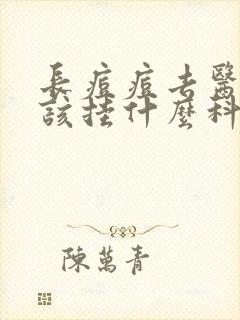 長痘痘去醫
該挂什麼科
陳萬青